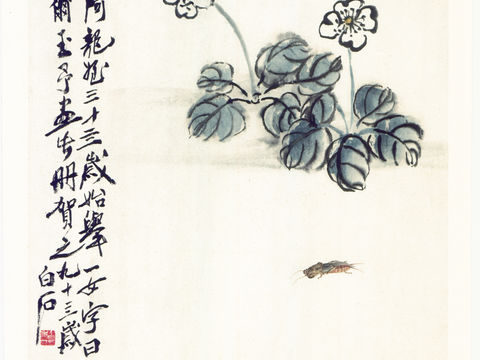 龍三十三歲始舉一女字曰
爾玉予畫此冊賀之九十三歲
白石